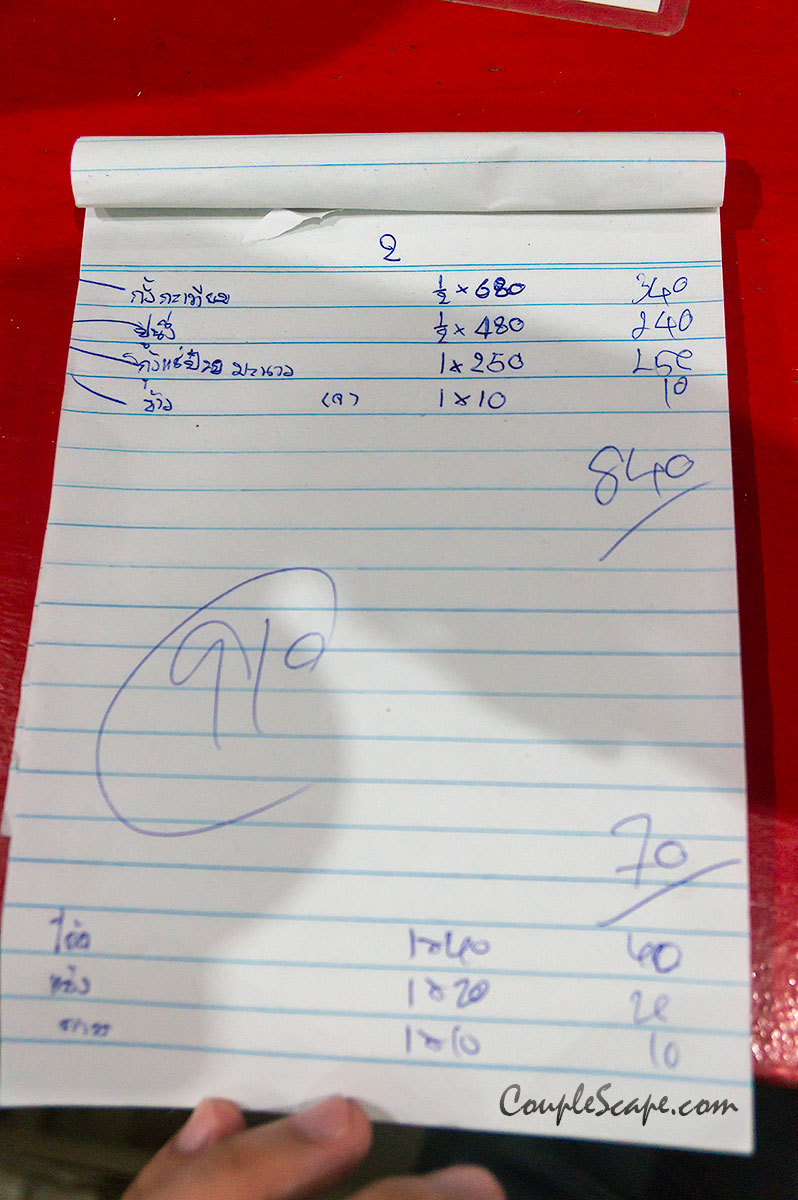 2
กุ้งกะเทียม ½ × 680 340
ปูนึ่ง ½ × 480 240
กุ้งแช่น้ำปลา มะนาว 1 × 250 250
ข้าว (จ) 1 × 10 10
840
910
70
1×40 40
แข็ง 1×20 20
1×10 10
CoupleScape.com